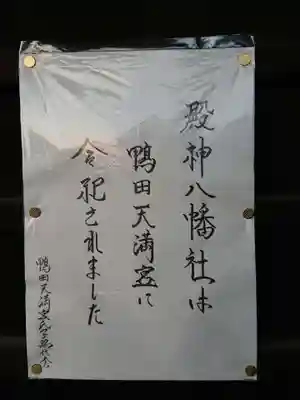 殿神八幡社は
鴨田天満宮に
合祀されました
鴨田天満宮氏子総代会